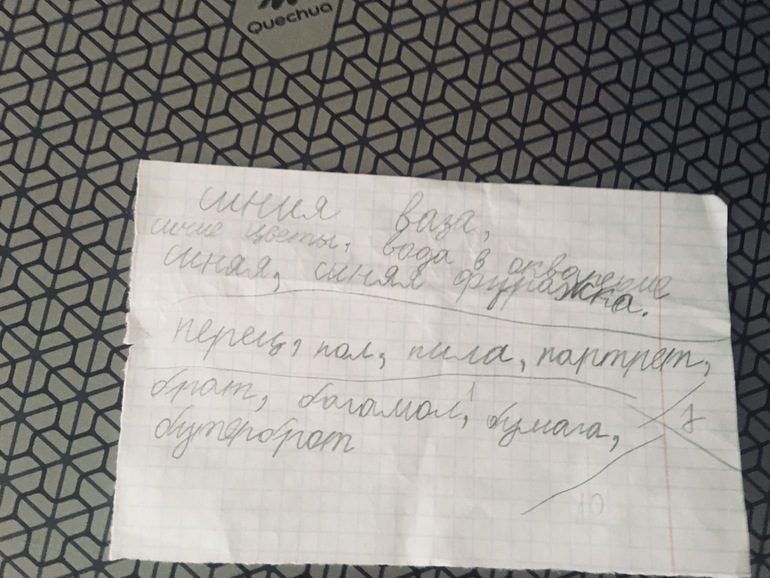 Quechua
синия ваза,
синие цветы, вода в аквареме
синяя, синяя фуражка.
перец, пол, пила, партрет,
брат, богамол, бумага, 7
бутерброт
10